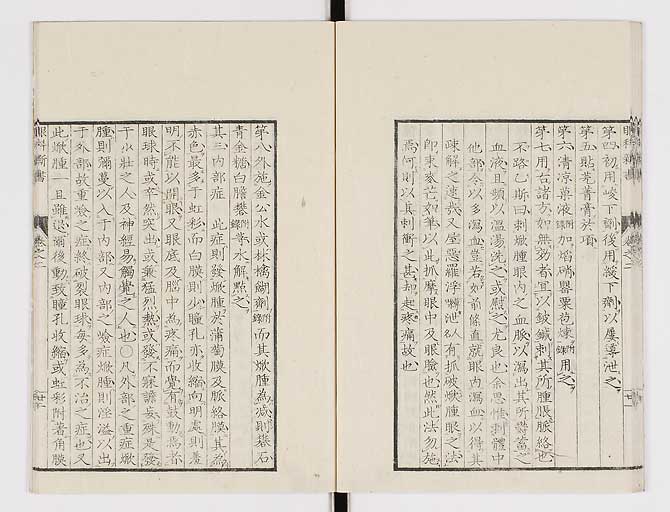 第四初用峻下劑後用緩下劑以屢導泄之
第五貼芫菁膏於項
第六清涼藥液附錄加焔硝罌粟苞煉附錄用之
第七用右諸方如無効者宜以鈹鍼刺其所腫脹脈絡也
不路乙斯曰刺焮腫眼內之血脈以瀉出其所鬱蓄之
血液且頻以溫湯洗之或慰之尤良也余思惟刺體中
他部令以多瀉血豈若如前條直就眼內瀉血以得其
疎解之速哉又屋悉羅浮噿泄以有抓破焮腫眼之法
即束麥芒如筆以此抓摩眼中及眼瞼也然此法勿施
焉何則以其刺衝之甚却起疼痛故也
第八外施金公水或林檎餬劑附錄而其焮腫為減則礬石
青金糖白膽礬附錄等水解點之
其三內部症 此症則發焮腫於葡萄膜及脈絡膜其為
赤色最多于虹彩而白膜則少瞳孔亦收縮向明處則羞
明不能以開眼又眼底及腦中為疼痛而覺有鼓動焉者
眼球時或卒然突出或兼猛烈熱或發不寐譫妄殊是發
于少壯之人及神經易觸覺之人也〇凡外部之重症焮
腫則彌蔓以入于內部又內部之嶮症焮腫則淫溢以出
于外部故重嶮之症終破裂眼球每多為不治之症也又
此焮腫一旦雖退爾後動致瞳孔收縮或虹彩附著角膜
眼科新書
卷之二
眼科新書
卷之二